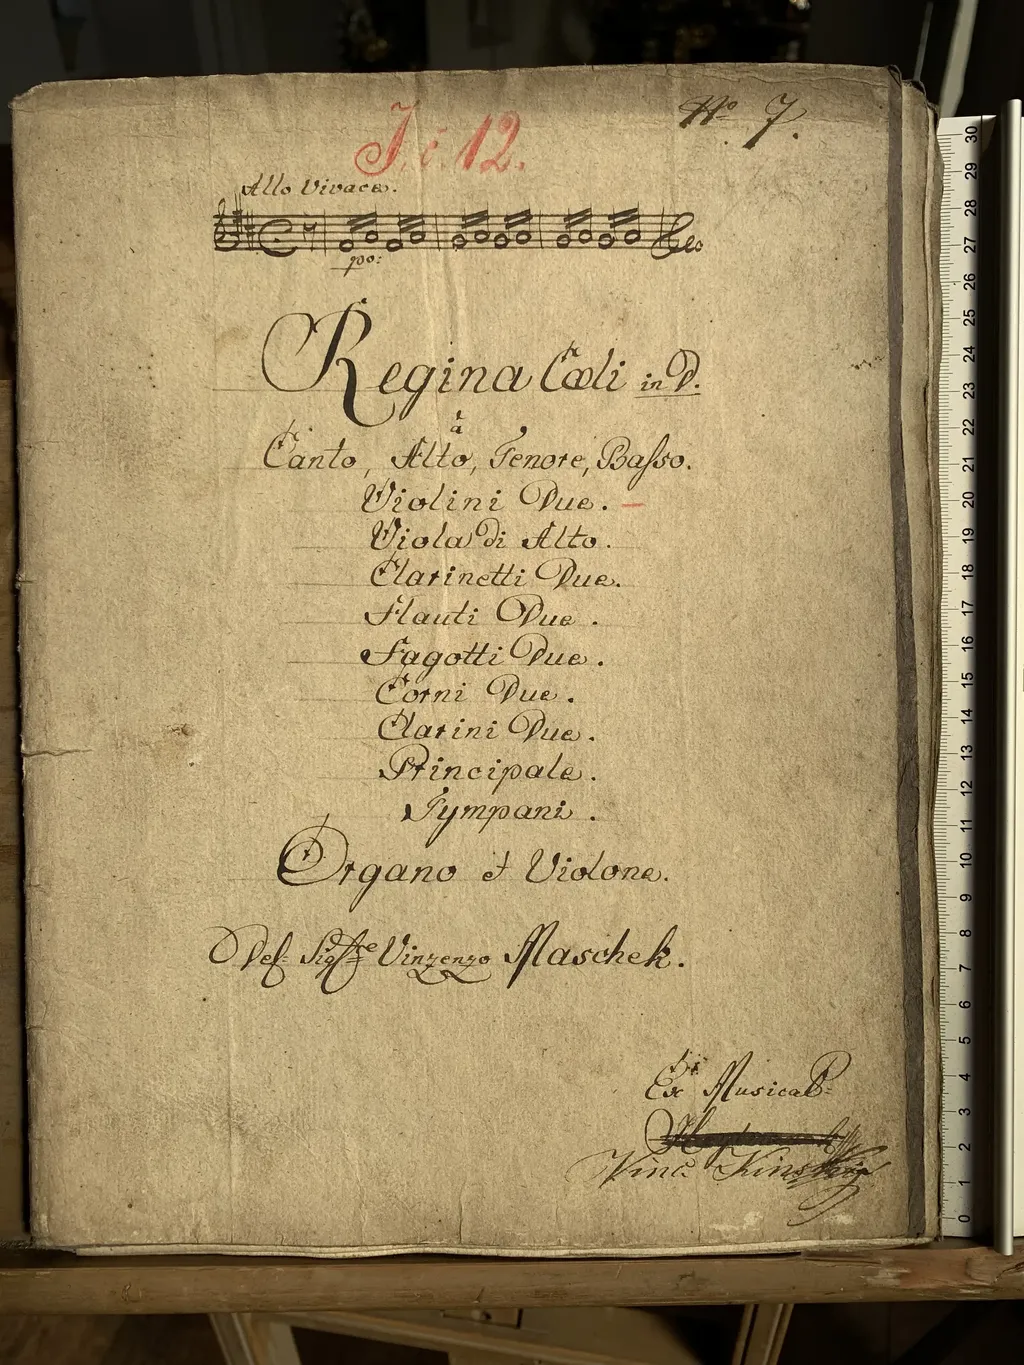 No 7.
J. i. 12.
Allo Vivace.
po:
Regina Cœli in D.
à
Canto, Alto, Tenore, Basso.
Violini Due.
Viola di Alto.
Clarinetti Due.
Flauti Due.
Fagotti Due.
Corni Due.
Clarini Due.
Principale.
Tympani.
Organo et Violone.
Del Sigre Vinzenzo Maschek.
Ex Musical
Vinc
30
29
28
27
26
25
24
23
22
21
20
19
18
17
16
15
14
13
12
11
10
9
8
7
6
5
4
3
2
1
0